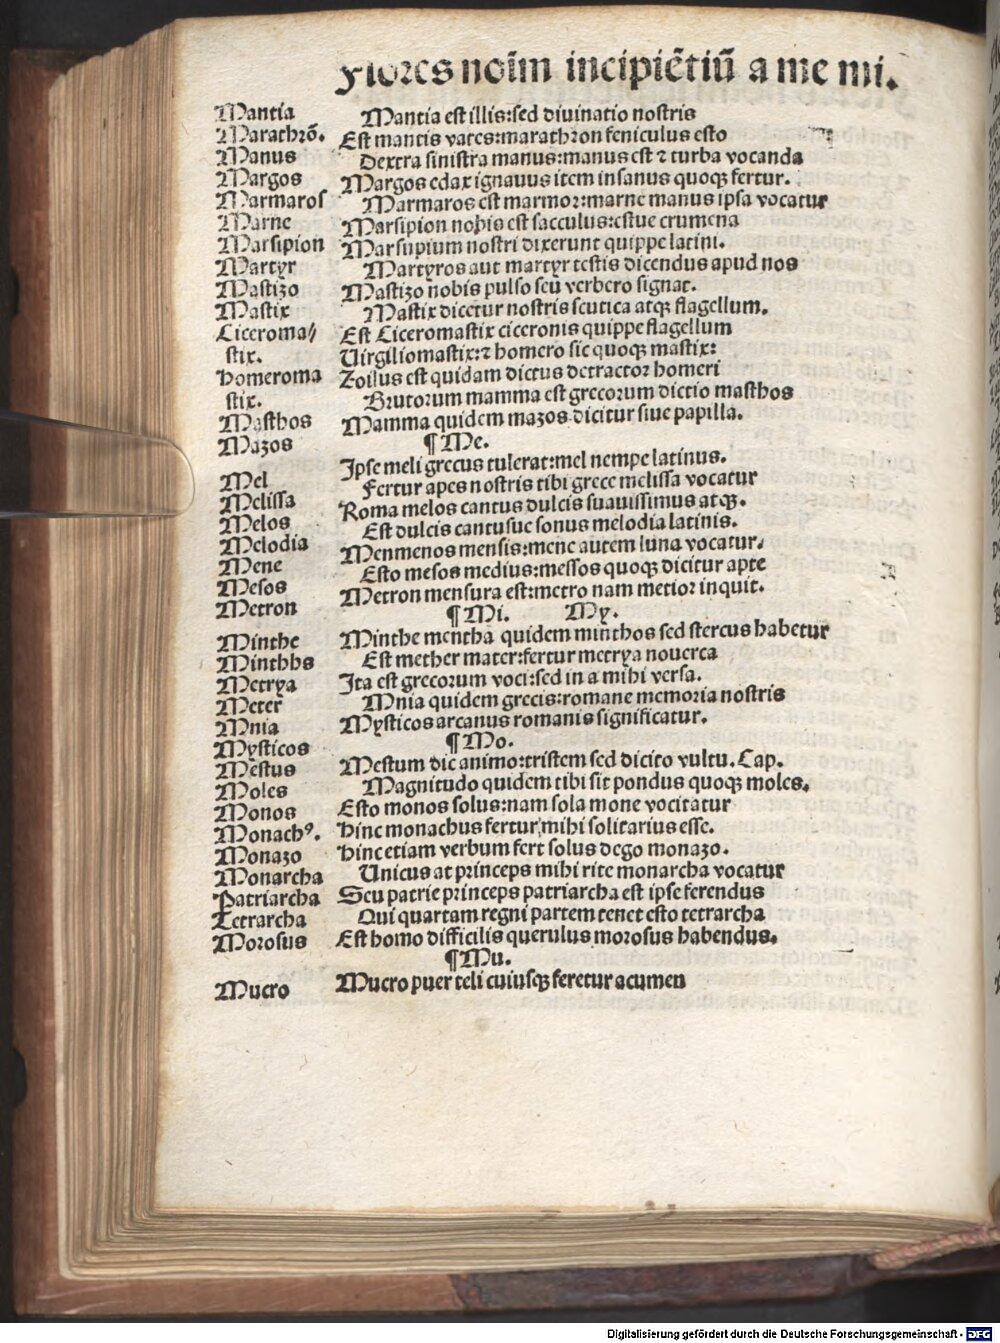 Flores noīm incipiētiū a me mi.
Mantia Mantia est illis:sed diuinatio nostris
Marathrō. Est mantis vates:marathron feniculus esto
Manus Dextra sinistra manus:manus est ⁊ turba vocanda
Margos Margos edax ignauus item insanus quoqꝫ fertur.
Marmaros Marmaros est marmor:marne manus ipsa vocatur
Marne Marsipion nobis est sacculus:estue crumena
Marsipion Marsupium nostri dixerunt quippe latini.
Martyr Martyros aut martyr testis dicendus apud nos
Mastizo Mastizo nobis pulso seu verbero signat.
Mastix Mastix dicetur nostris scutica atqꝫ flagellum.
Ciceroma⸗ Est Ciceromastix ciceronis quippe flagellum
stix. Uirgiliomastix:⁊ homero sic quoqꝫ mastix:
Homeroma Zoilus est quidam dictus detractor homeri
stix. Brutorum mamma est grecorum dictio masthos
Masthos Mamma quidem mazos dicitur siue papilla.
Mazos ¶ Me.
Mel Ipse meli grecus tulerat:mel nempe latinus.
Melissa Fertur apes nostris tibi grece melissa vocatur
Melos Roma melos cantus dulcis suauissimus atqꝫ.
Melodia Est dulcis cantusue sonus melodia latinis.
Mene Menmenos mensis:mene autem luna vocatur.
Mesos Esto mesos medius:messos quoqꝫ dicitur apte
Metron Metron mensura est:metro nam metior inquit.
¶ Mi. My.
Minthe Minthe mentha quidem minthos sed stercus habetur
Minthhs Est mether mater:fertur metrya nouerca
Metrya Ita est grecorum voci:sed in a mihi versa.
Meter Mnia quidem grecis:romane memoria nostris
Mnia Mysticos arcanus romanis significatur.
Mysticos ¶ Mo.
Mestus Mestum dic animo:tristem sed dicito vultu. Cap.
Moles Magnitudo quidem tibi sit pondus quoqꝫ moles.
Monos Esto monos solus:nam sola mone vocitatur
Monachꝰ. Hinc monachus fertur mihi solitarius esse.
Monazo Hinc etiam verbum fert solus dego monazo.
Monarcha Unicus at princeps mihi rite monarcha vocatur
Patriarcha Seu patrie princeps patriarcha est ipse ferendus
Tetrarcha Qui quartam regni partem tenet esto tetrarcha
Morosus Est homo difficilis querulus morosus habendus.
¶ Mu.
Mucro Mucro puer teli cuiusqꝫ feretur acumen
Digitalisierung gefördert durch die Deutsche Forschungsgemeinschaft - DFG